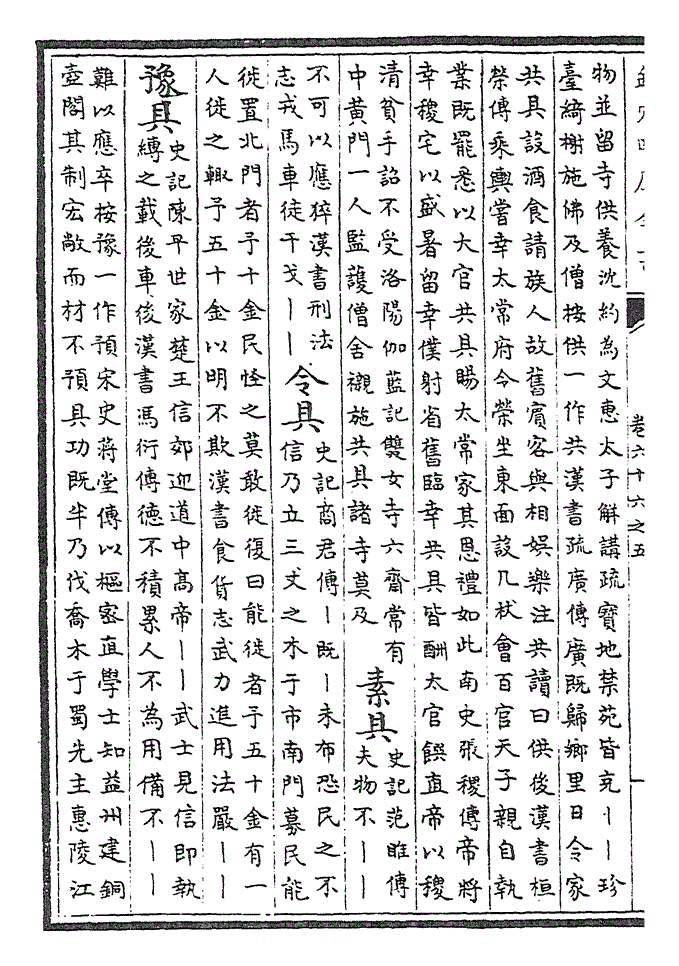 卷六十六之五
物並留寺供養沈約為文惠太子解講疏寶地禁苑皆充丨丨珍
臺綺榭施佛及僧按供一作共漢書疏廣傳廣既歸鄉里日令家
共具設酒食請族人故舊賓客與相娛樂注共讀曰供後漢書桓
榮傳乘輿嘗幸太常府令榮坐東面設几杖會百官天子親自執
業既罷悉以大官共具賜太常家其恩禮如此南史張稷傳帝將
幸稷宅以盛暑留幸僕射省舊臨幸共具皆酬太官饌直帝以稷
清貧手詔不受洛陽伽藍記雙女寺六齋常有
中黃門一人監護僧舍襯施共具諸寺莫及
素具
史記范睢傳
夫物不丨丨
不可以應猝漢書刑法
志戎馬車徒干戈丨丨
令具
史記商君傳丨既丨未布恐民之不
信乃立三丈之木于市南門募民能
徙置北門者予十金民怪之莫敢徙復曰能徙者予五十金有一
人徙之輙予五十金以明不欺漢書食貨志武力進用法嚴丨丨
豫具
史記陳平世家楚王信郊迎道中高帝丨丨武士見信即執
縛之載後車後漢書馮衍傳德不積累人不為用備不丨丨
難以應卒按豫一作預宋史蔣堂傳以樞密直學士知益州建銅
壺閣其制宏敞而材不預具功既半乃伐喬木于蜀先主惠陵江